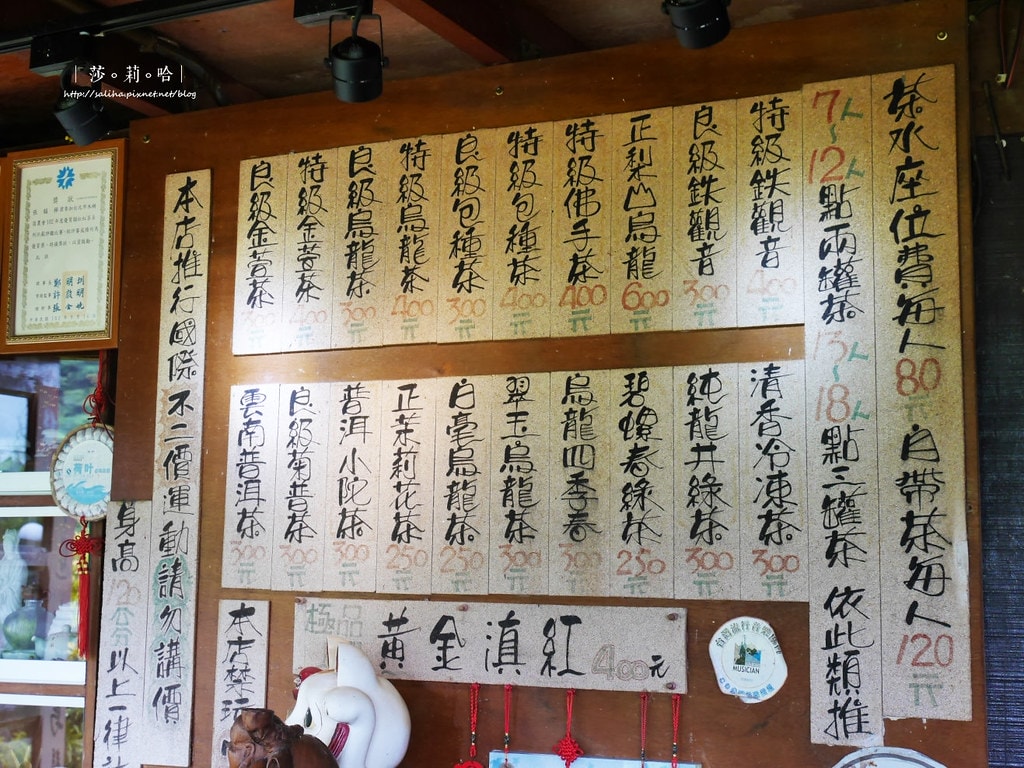 ｜莎。莉。哈｜
http://saliha.pixnet.net/blog
茶水座位費每人80元 自帶茶每人120元
7人~12人點兩罐茶 13人~18人點三罐茶 依此類推
特級鉄觀音 400元
良級鉄觀音 300元
正梨山烏龍 600元
特級佛手茶 400元
特級包種茶 400元
良級包種茶 300元
特級烏龍茶 400元
良級烏龍茶 300元
特級金萱茶 400元
良級金萱茶 300元
清香冷凍茶 300元
純龍井綠茶 300元
碧螺春綠茶 250元
烏龍四季春 300元
翠玉烏龍茶 300元
白毫烏龍茶 250元
正茉莉花茶 250元
普洱小陀茶 300元
良級菊普茶 300元
雲南普洱茶 300元
極品 黃金滇紅 400元
本店推行國際不二價運動請勿講價
身高120公分以上一律
本店禁玩
MUSICIAN
荷叶